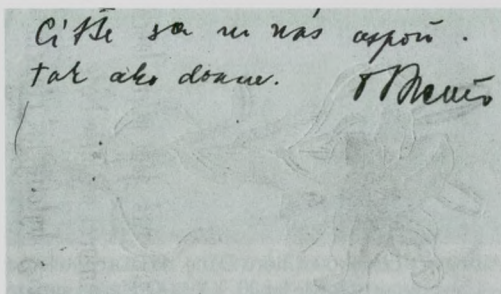 Cíťte sa u nás aspoň
tak ako doma.